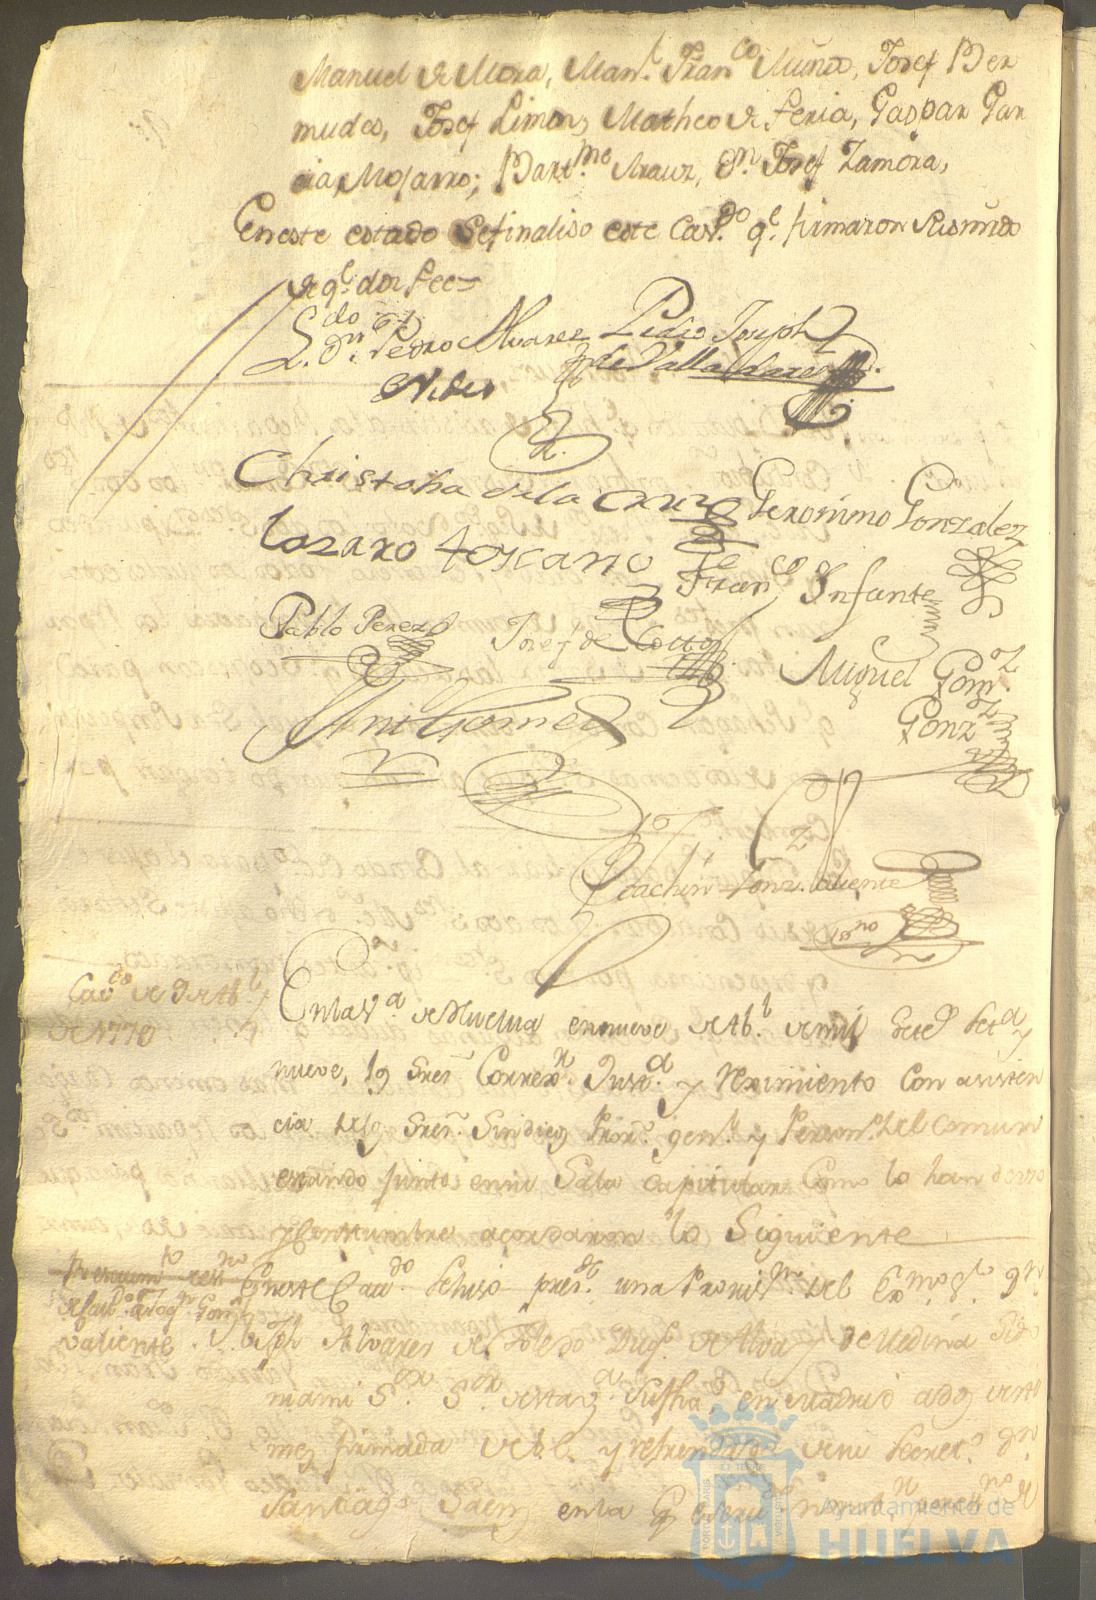 Manuel de Mora, Man.l Fran.co Muños, Josef Ber
mudes, Josef Limon, Matheo de Feria, Gaspar Gar
cia Mojarro; Bart.me Arauz, Dn. Josef Zamora,
En este estado Sefinaliso este Cav.do q.e firmaron
de q.e doi fee=
L.do Dn. Pedro Alvarez Pedro Joseph
de Valladares
Christoba dela Cruz Geronimo Gonzalez
Lozaro toscano Fran.co Ynfante
Pablo Perez Josef de Cotto
Miguel Gom.z
Ant Gomez Gonz.z
Joachin Gonz. Valiente
Ss.no
Cav.do de 9 de Ab.l
de 1770
Enla V.a de Huelva en nueve de Ab.l de mil Sete.s Set.a y
nueve, los Sres. Correx.r Just.a y Reximiento con asisten
cia delos Sres. Sindicos Pror. gen.l y Person.o del Comun
estando juntos en su Sala Capitular Como lo han de uso
y Costtumbre acordaron lo Siguiente
Eneste Cav.do Sehiso pres.te una Provis.on del Ex.mo S.r Dn.
Valiente. Joseph Alvarez de Toledo Duq.e de Alva y de Medina Sido
nia mi S.or S.or de esta V.a Su fha, en Madrid a dos de este
mes firmada de S.E. y refrendata de su Secret.o Dn.
Santiago Saenz en la q.e
Ayuntamiento de
HUELVA